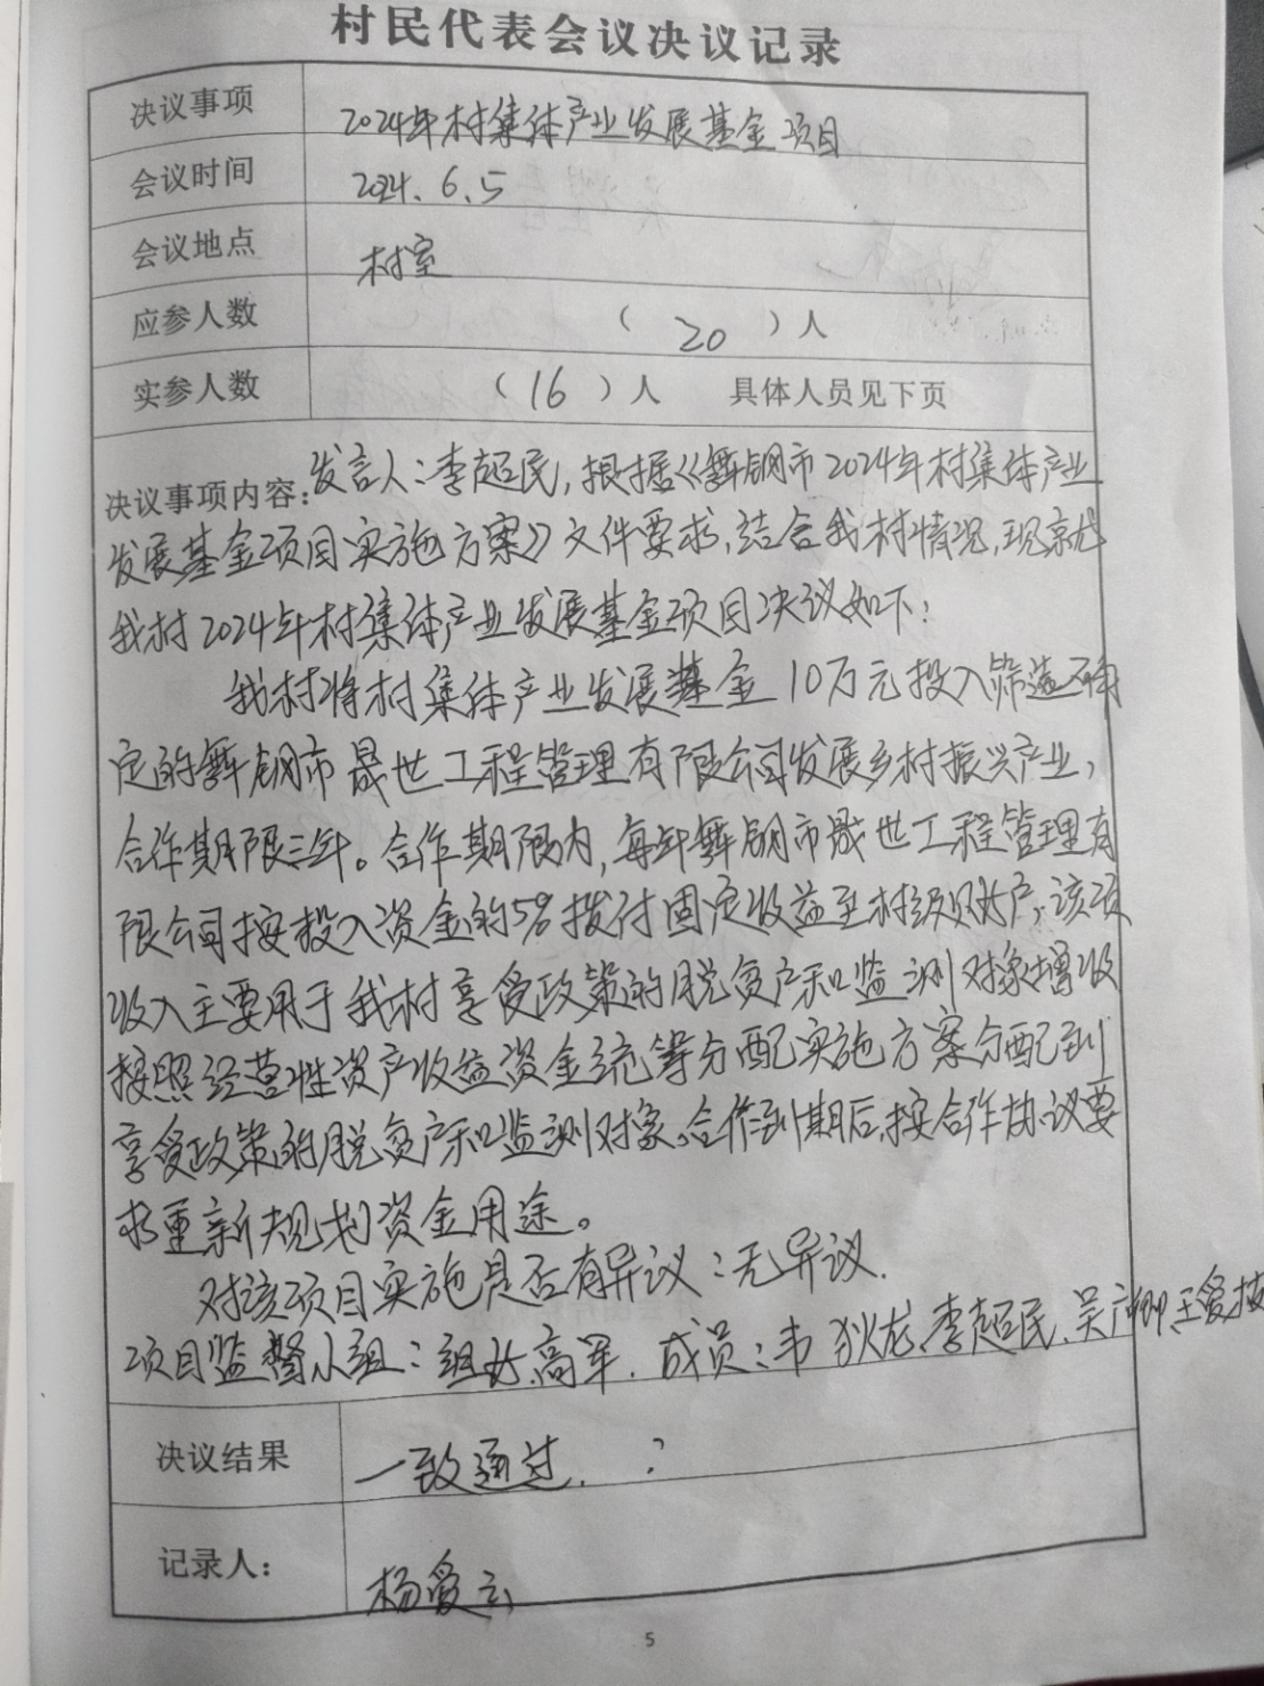 村民代表会议决议记录
决议事项 2024年村集体产业发展基金项目
会议时间 2024.6.5
会议地点 村室
应参人数 （20）人
实参人数 （16）人 具体人员见下页
决议事项内容：发言人：李超民，根据《舞钢市2024年村集体产业
发展基金项目实施方案》文件要求，结合我村情况，现就
我村2024年村集体产业发展基金项目决议如下：
我村将村集体产业发展基金10万元投入筛选确
定的舞钢市晟世工程管理有限公司发展乡村振兴产业，
合作期限三年。合作期限内，每年舞钢市晟世工程管理有
限公司按投入资金的5%拨付固定收益至村级账户，该项
收入主要用于我村享受政策的脱贫户和监测对象增收
按照经营性资产收益资金统筹分配实施方案分配到
享受政策的脱贫户和监测对象。合作到期后，按合作协议要
求重新规划资金用途。
对该项目实施是否有异议：无异议.
项目监督小组：组长高军. 成员：韦狄龙、李超民、吴广卿、王爱
决议结果 一致通过.
记录人： 杨爱云
5